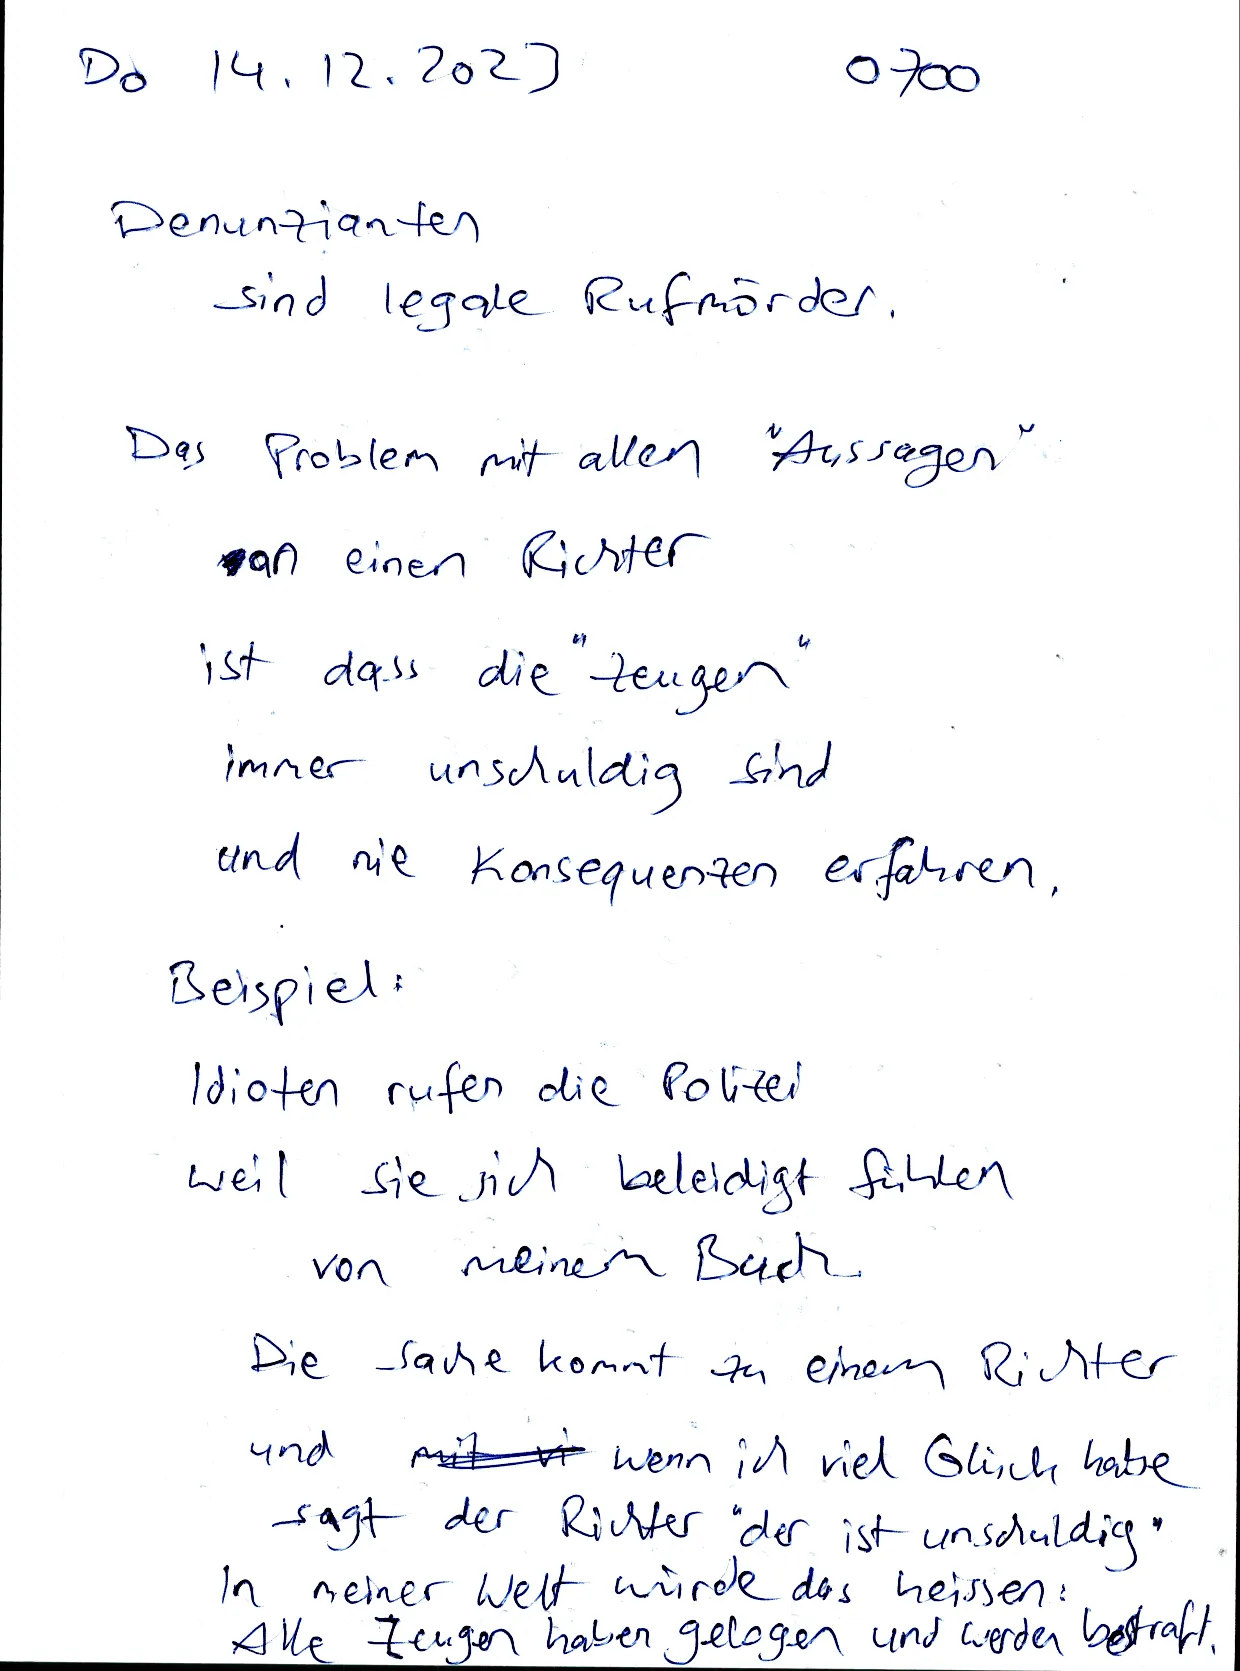 Do 14.12.2023 0700
Denunzianten
sind legale Rufmörder.
Das Problem mit allen "Aussagen"
an einen Richter
ist dass die "Zeugen"
immer unschuldig sind
und nie Konsequenzen erfahren.
Beispiel:
Idioten rufen die Polizei
weil sie sich beleidigt fühlen
von meinem Buch
Die Sache kommt zu einem Richter
und mit vi wenn ich viel Glück habe
sagt der Richter "der ist unschuldig"
In meiner Welt würde das heissen:
Alle Zeugen haben gelogen und werden bestraft.